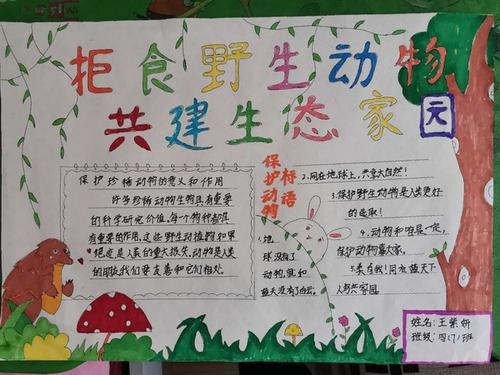 拒食野生动物
共建生态家园
保护珍稀动物的意义和作用
许多珍稀动物具有重要
的科学研究价值,每个物种都具
有重要的作用,这些野生动植物如果
绝迹,是人类的重大损失,动物是人类
的朋友我们要友善和它们相处
保护动物
标语
1.地
球没有了
动物,就如
蓝天没有了白云。
2.同在地球上,共享大自然!
3.保护野生动物是人类更好
的选取!
4.动物和咱是一家,
保护动物靠大家。
人类共家园。
姓名:王紫妍
班级:四(7)班